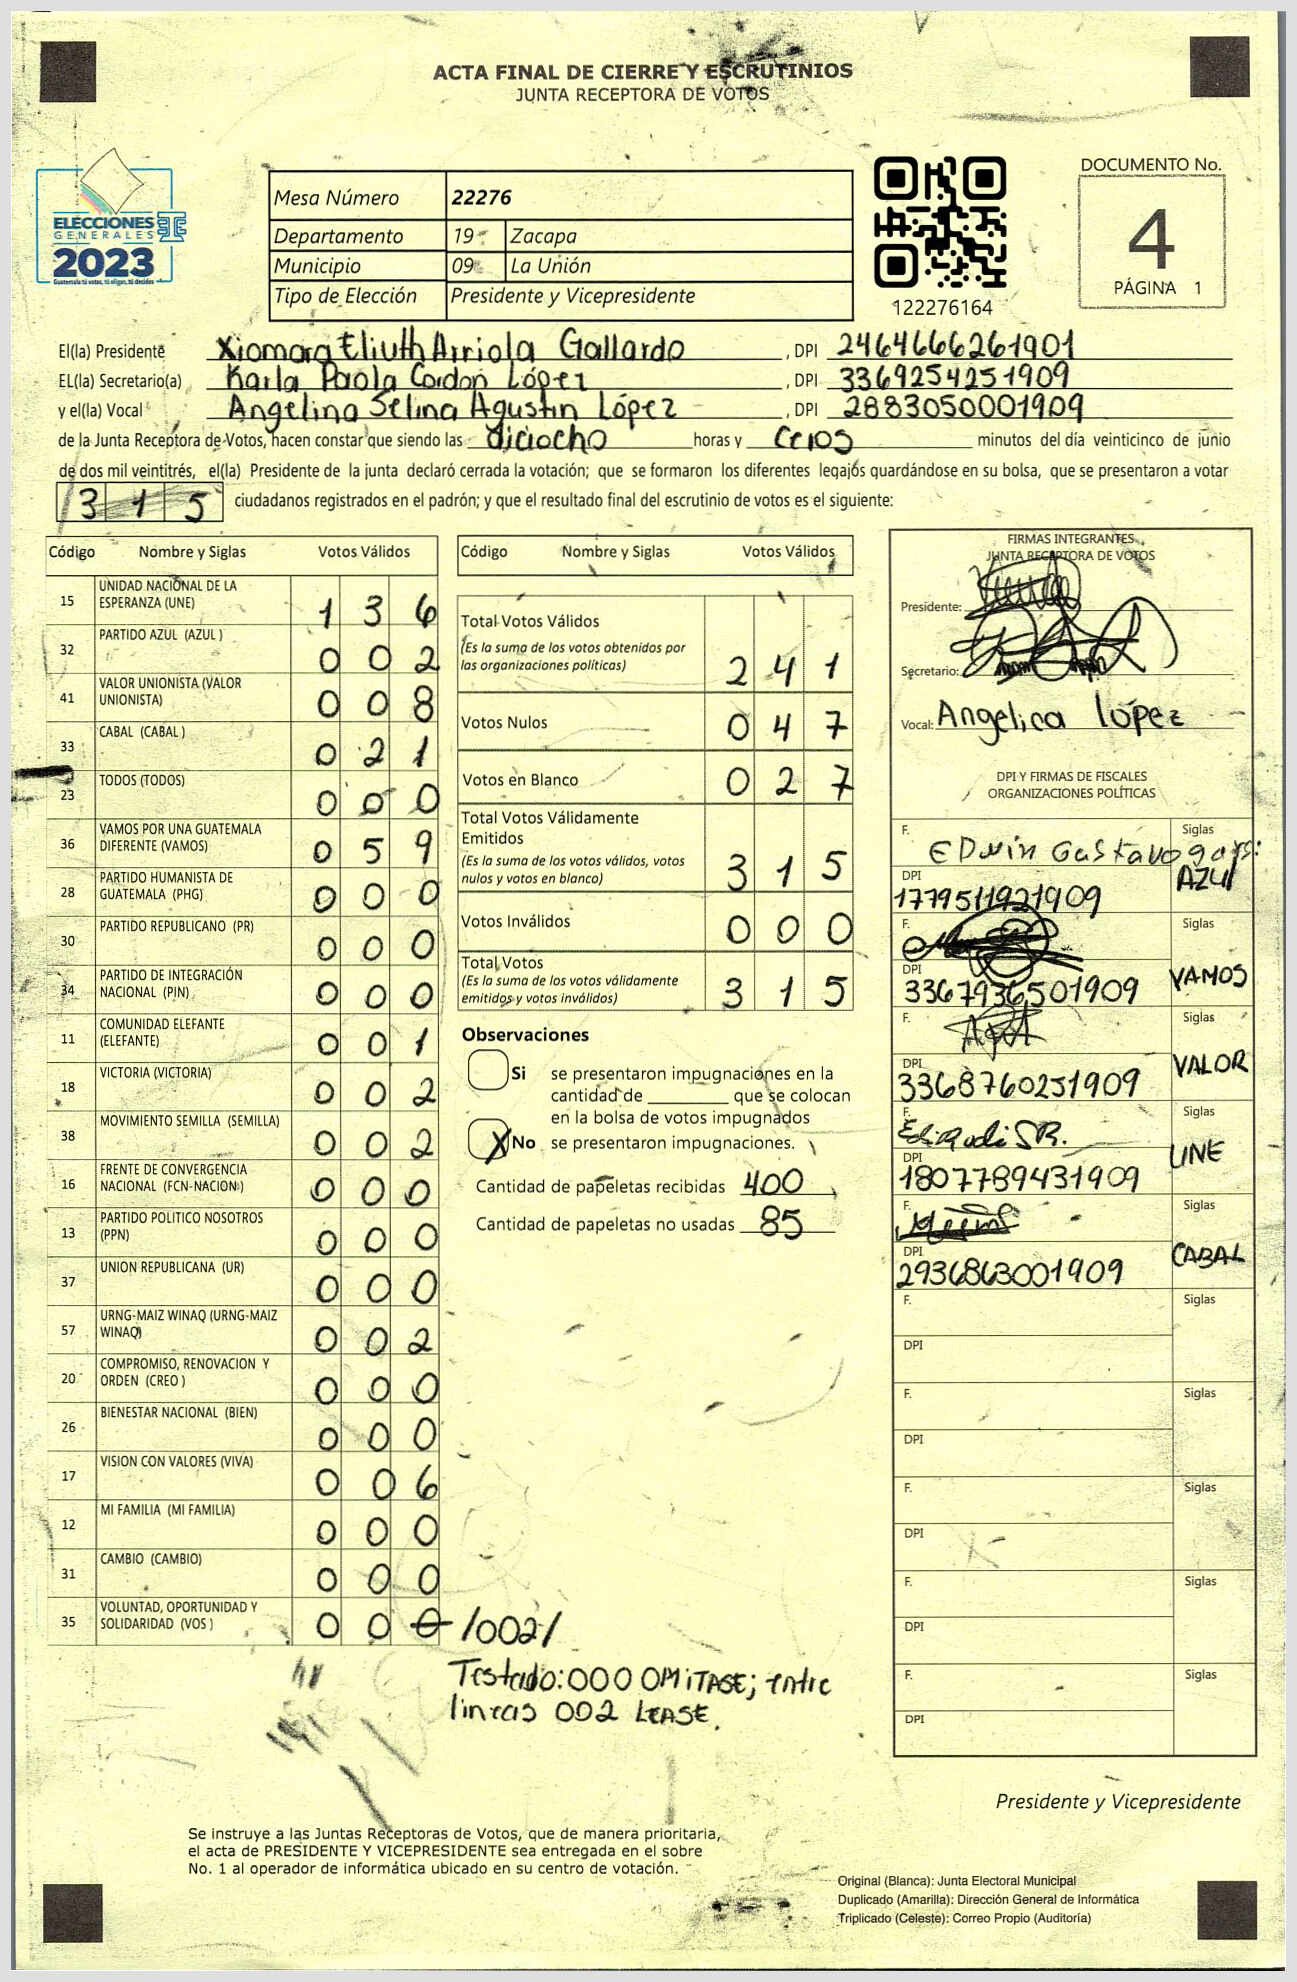 ACTA FINAL DE CIERRE Y ESCRUTINIOS
JUNTA RECEPTORA DE VOTOS
ELECCIONES
GENERALES
2023
Guatemala tú votas, tú eliges, tú decides
Mesa Número 22276
Departamento 19 Zacapa
Municipio 09 La Unión
Tipo de Elección Presidente y Vicepresidente
122276164
DOCUMENTO No.
4
PÁGINA 1
El(la) Presidente Xiomara Eliuth Arriola Gallardo , DPI 2464666261901
EL(la) Secretario(a) Karla Paola Cordon López , DPI 3369254251909
y el(la) Vocal Angelina Selina Agustin López , DPI 2883050001909
de la Junta Receptora de Votos, hacen constar que siendo las diciocho horas y ceros minutos del día veinticinco de junio
de dos mil veintitrés, el(la) Presidente de la junta declaró cerrada la votación; que se formaron los diferentes legajos quardándose en su bolsa, que se presentaron a votar
3 1 5 ciudadanos registrados en el padrón; y que el resultado final del escrutinio de votos es el siguiente:
Código Nombre y Siglas Votos Válidos
15 UNIDAD NACIONAL DE LA ESPERANZA (UNE) 1 3 6
32 PARTIDO AZUL (AZUL ) 0 0 2
41 VALOR UNIONISTA (VALOR UNIONISTA) 0 0 8
33 CABAL (CABAL ) 0 2 1
23 TODOS (TODOS) 0 0 0
36 VAMOS POR UNA GUATEMALA DIFERENTE (VAMOS) 0 5 9
28 PARTIDO HUMANISTA DE GUATEMALA (PHG) 0 0 0
30 PARTIDO REPUBLICANO (PR) 0 0 0
34 PARTIDO DE INTEGRACIÓN NACIONAL (PIN) 0 0 0
11 COMUNIDAD ELEFANTE (ELEFANTE) 0 0 1
18 VICTORIA (VICTORIA) 0 0 2
38 MOVIMIENTO SEMILLA (SEMILLA) 0 0 2
16 FRENTE DE CONVERGENCIA NACIONAL (FCN-NACION) 0 0 0
13 PARTIDO POLITICO NOSOTROS (PPN) 0 0 0
37 UNION REPUBLICANA (UR) 0 0 0
57 URNG-MAIZ WINAQ (URNG-MAIZ WINAQ) 0 0 2
20 COMPROMISO, RENOVACION Y ORDEN (CREO ) 0 0 0
26 BIENESTAR NACIONAL (BIEN) 0 0 0
17 VISION CON VALORES (VIVA) 0 0 6
12 MI FAMILIA (MI FAMILIA) 0 0 0
31 CAMBIO (CAMBIO) 0 0 0
35 VOLUNTAD, OPORTUNIDAD Y SOLIDARIDAD (VOS ) 0 0 0 /002/
Testado: 000 OMITASE; entre
lineas 002 LEASE.
Código Nombre y Siglas Votos Válidos
Total Votos Válidos 2 4 1
(Es la suma de los votos obtenidos por
las organizaciones políticas)
Votos Nulos 0 4 7
Votos en Blanco 0 2 7
Total Votos Válidamente
Emitidos 3 1 5
(Es la suma de los votos válidos, votos
nulos y votos en blanco)
Votos Inválidos 0 0 0
Total Votos 3 1 5
(Es la suma de los votos válidamente
emitidos y votos inválidos)
Observaciones
Si se presentaron impugnaciones en la
cantidad de ________ que se colocan
en la bolsa de votos impugnados
X No se presentaron impugnaciones.
Cantidad de papeletas recibidas 400
Cantidad de papeletas no usadas 85
FIRMAS INTEGRANTES
JUNTA RECEPTORA DE VOTOS
Presidente:
Secretario:
Vocal: Angelica López
DPI Y FIRMAS DE FISCALES
ORGANIZACIONES POLÍTICAS
F. Edwin Gustavo Siglas
DPI 1779511921909 AZUL
F. Siglas
DPI 3367936501909 VAMOS
F. Siglas
DPI 3368760251909 VALOR
F. Siglas
DPI 1807789431909 UNE
F. Siglas
DPI 2936863001909 CABAL
F. Siglas
DPI
F. Siglas
DPI
F. Siglas
DPI
F. Siglas
DPI
F. Siglas
DPI
Presidente y Vicepresidente
Se instruye a las Juntas Receptoras de Votos, que de manera prioritaria,
el acta de PRESIDENTE Y VICEPRESIDENTE sea entregada en el sobre
No. 1 al operador de informática ubicado en su centro de votación.
Original (Blanca): Junta Electoral Municipal
Duplicado (Amarilla): Dirección General de Informática
Triplicado (Celeste): Correo Propio (Auditoría)